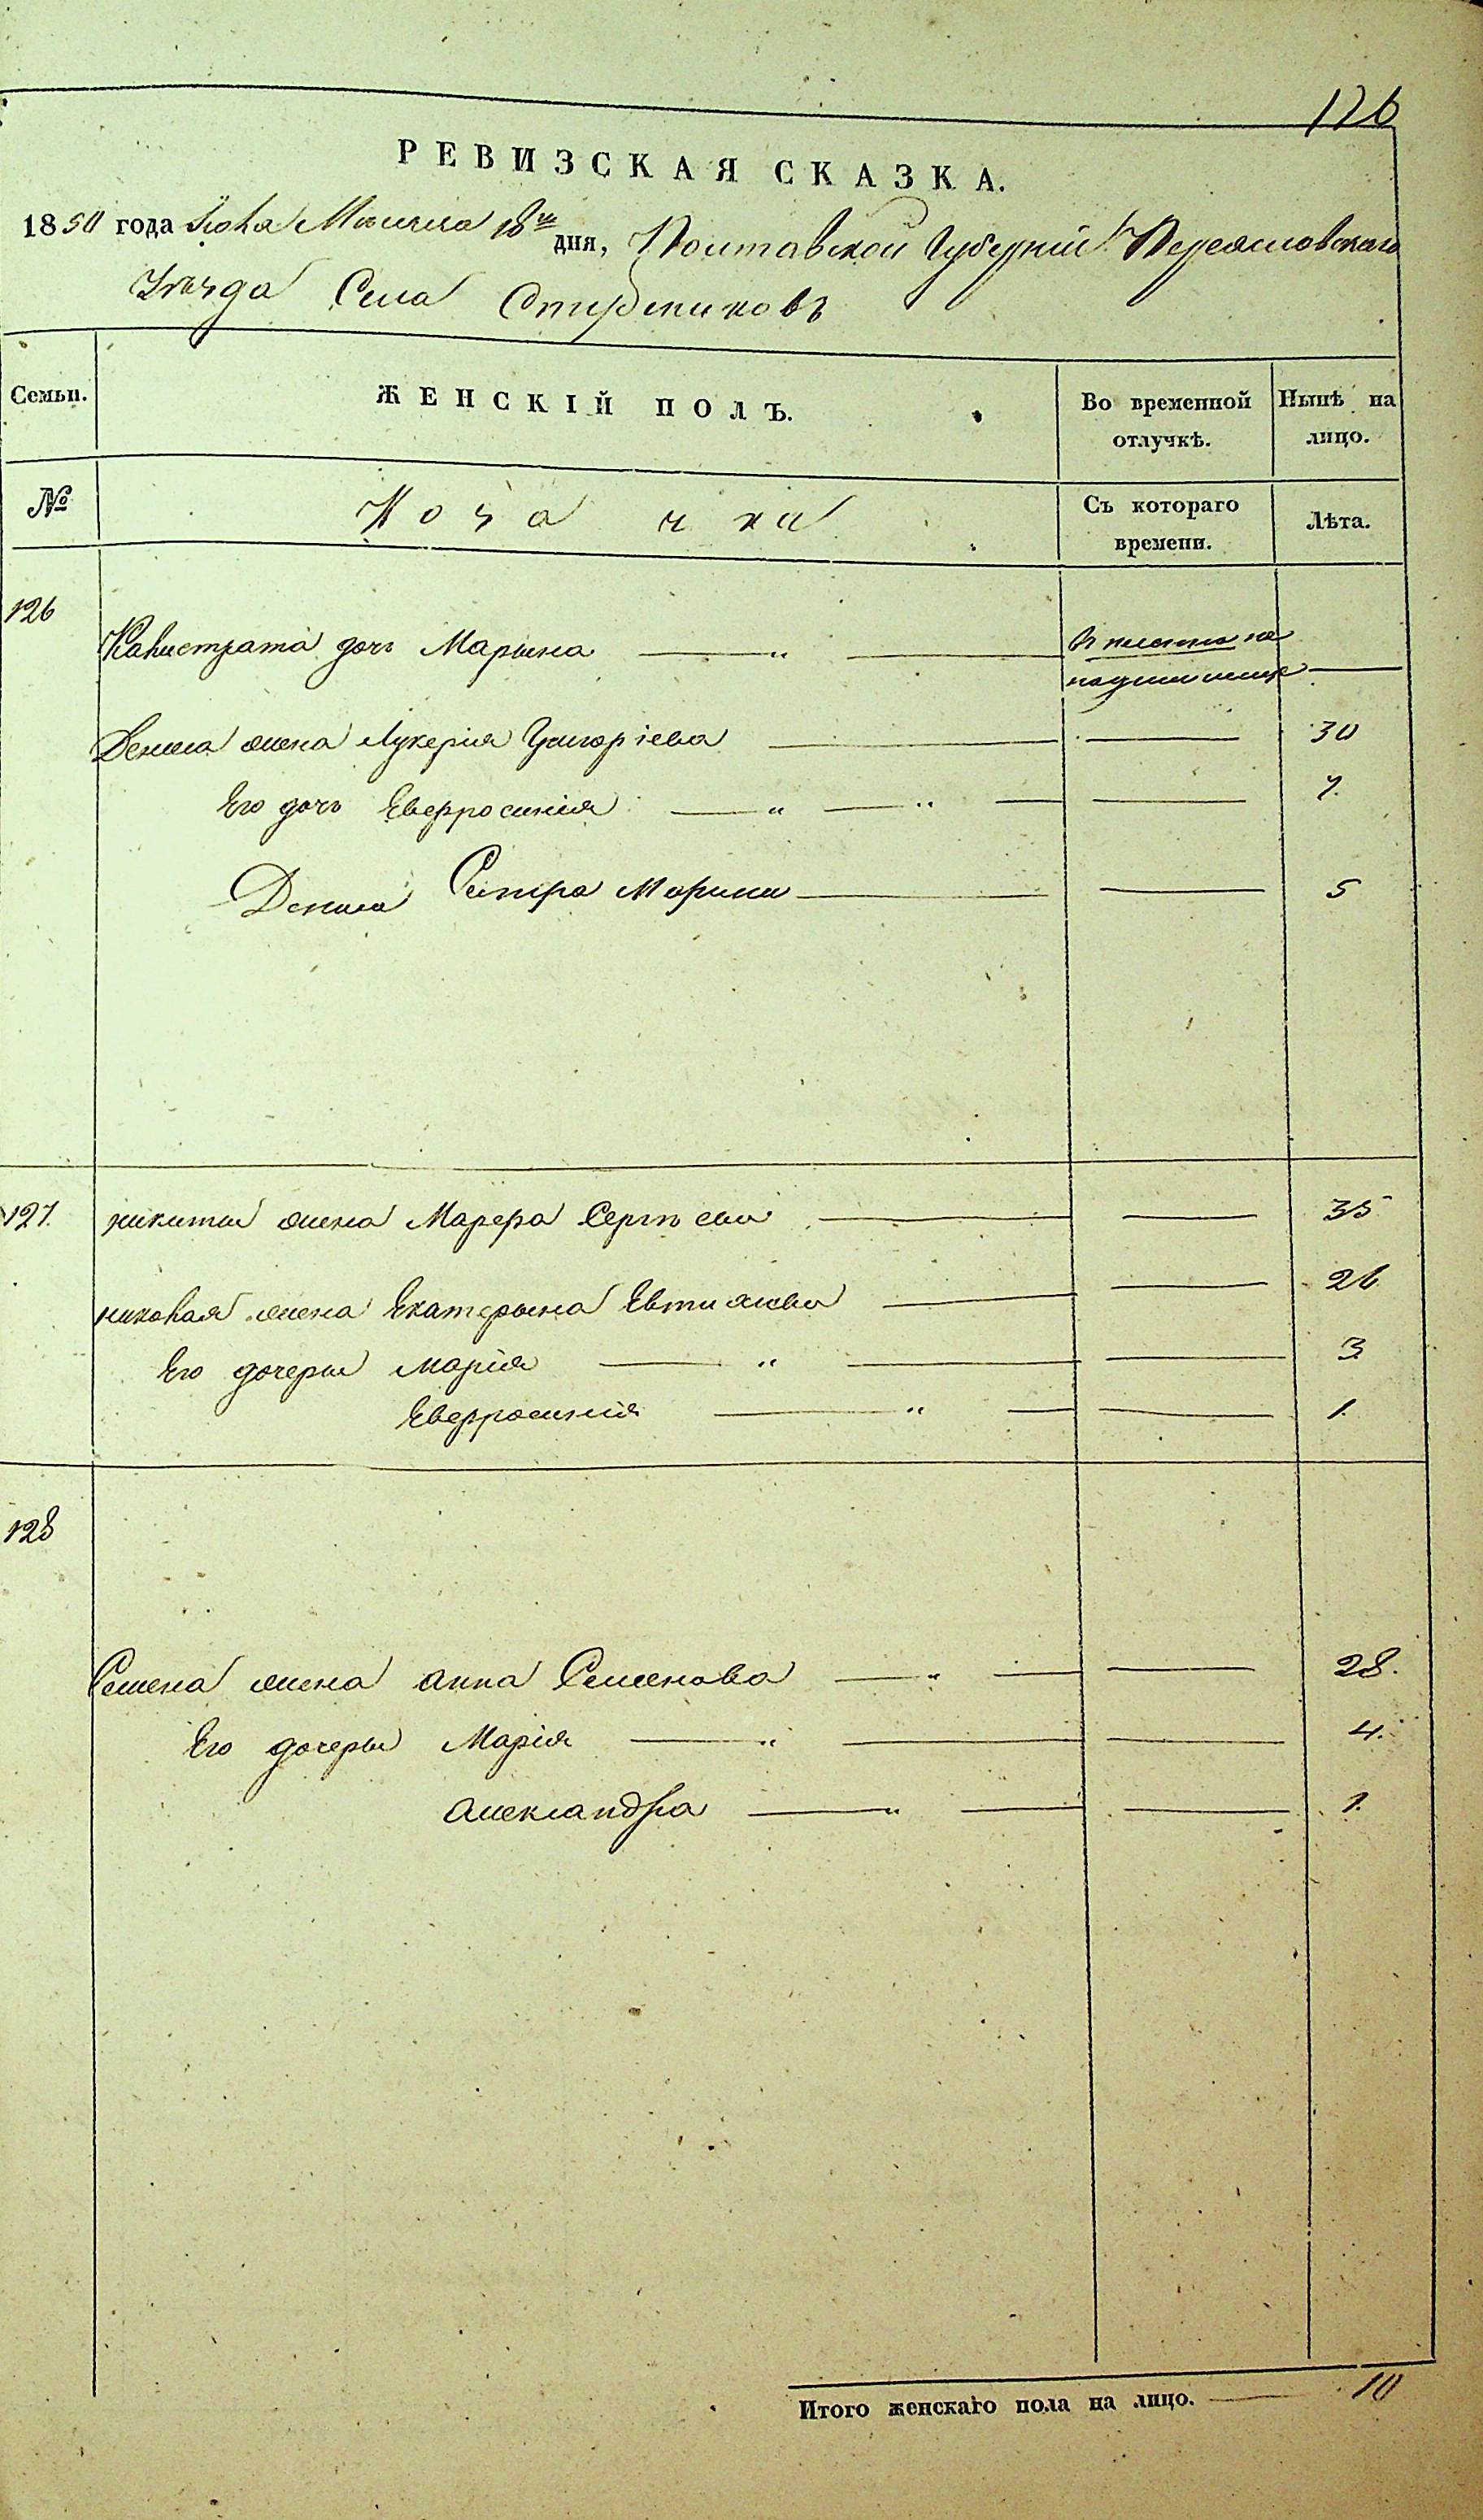 126
РЕВИЗСКАЯ СКАЗКА.
1850 года Июля Мѣсяца 18го дня, Полтавской Губерніи Переяславскаго
Уѣзда Села Стубликовъ
Семьи. ЖЕНСКІЙ ПОЛЪ. Во временной отлучкѣ. Нынѣ на лицо.
№ Козачки Съ котораго времени. Лѣта.
126
Калистрата дочь Марына — „ —
Дениса жена Лукерія Григоріева — — 30
Его дочь Евфросинія — „ — „ — — 7.
Дениса Сестра Марина — — 5
127. никиты жена Марфа Сергѣева — — 35
николая жена Екатерына Евтихіева — — 26
Его дочеры Марія — „ — — 3
Евфросинія — „ — — 1.
128
Семена жена анна Семенова — „ — — 28.
Его дочеры Марія — „ — — 4.
александра — „ — — 1.
Итого женскаго пола на лицо. — 10